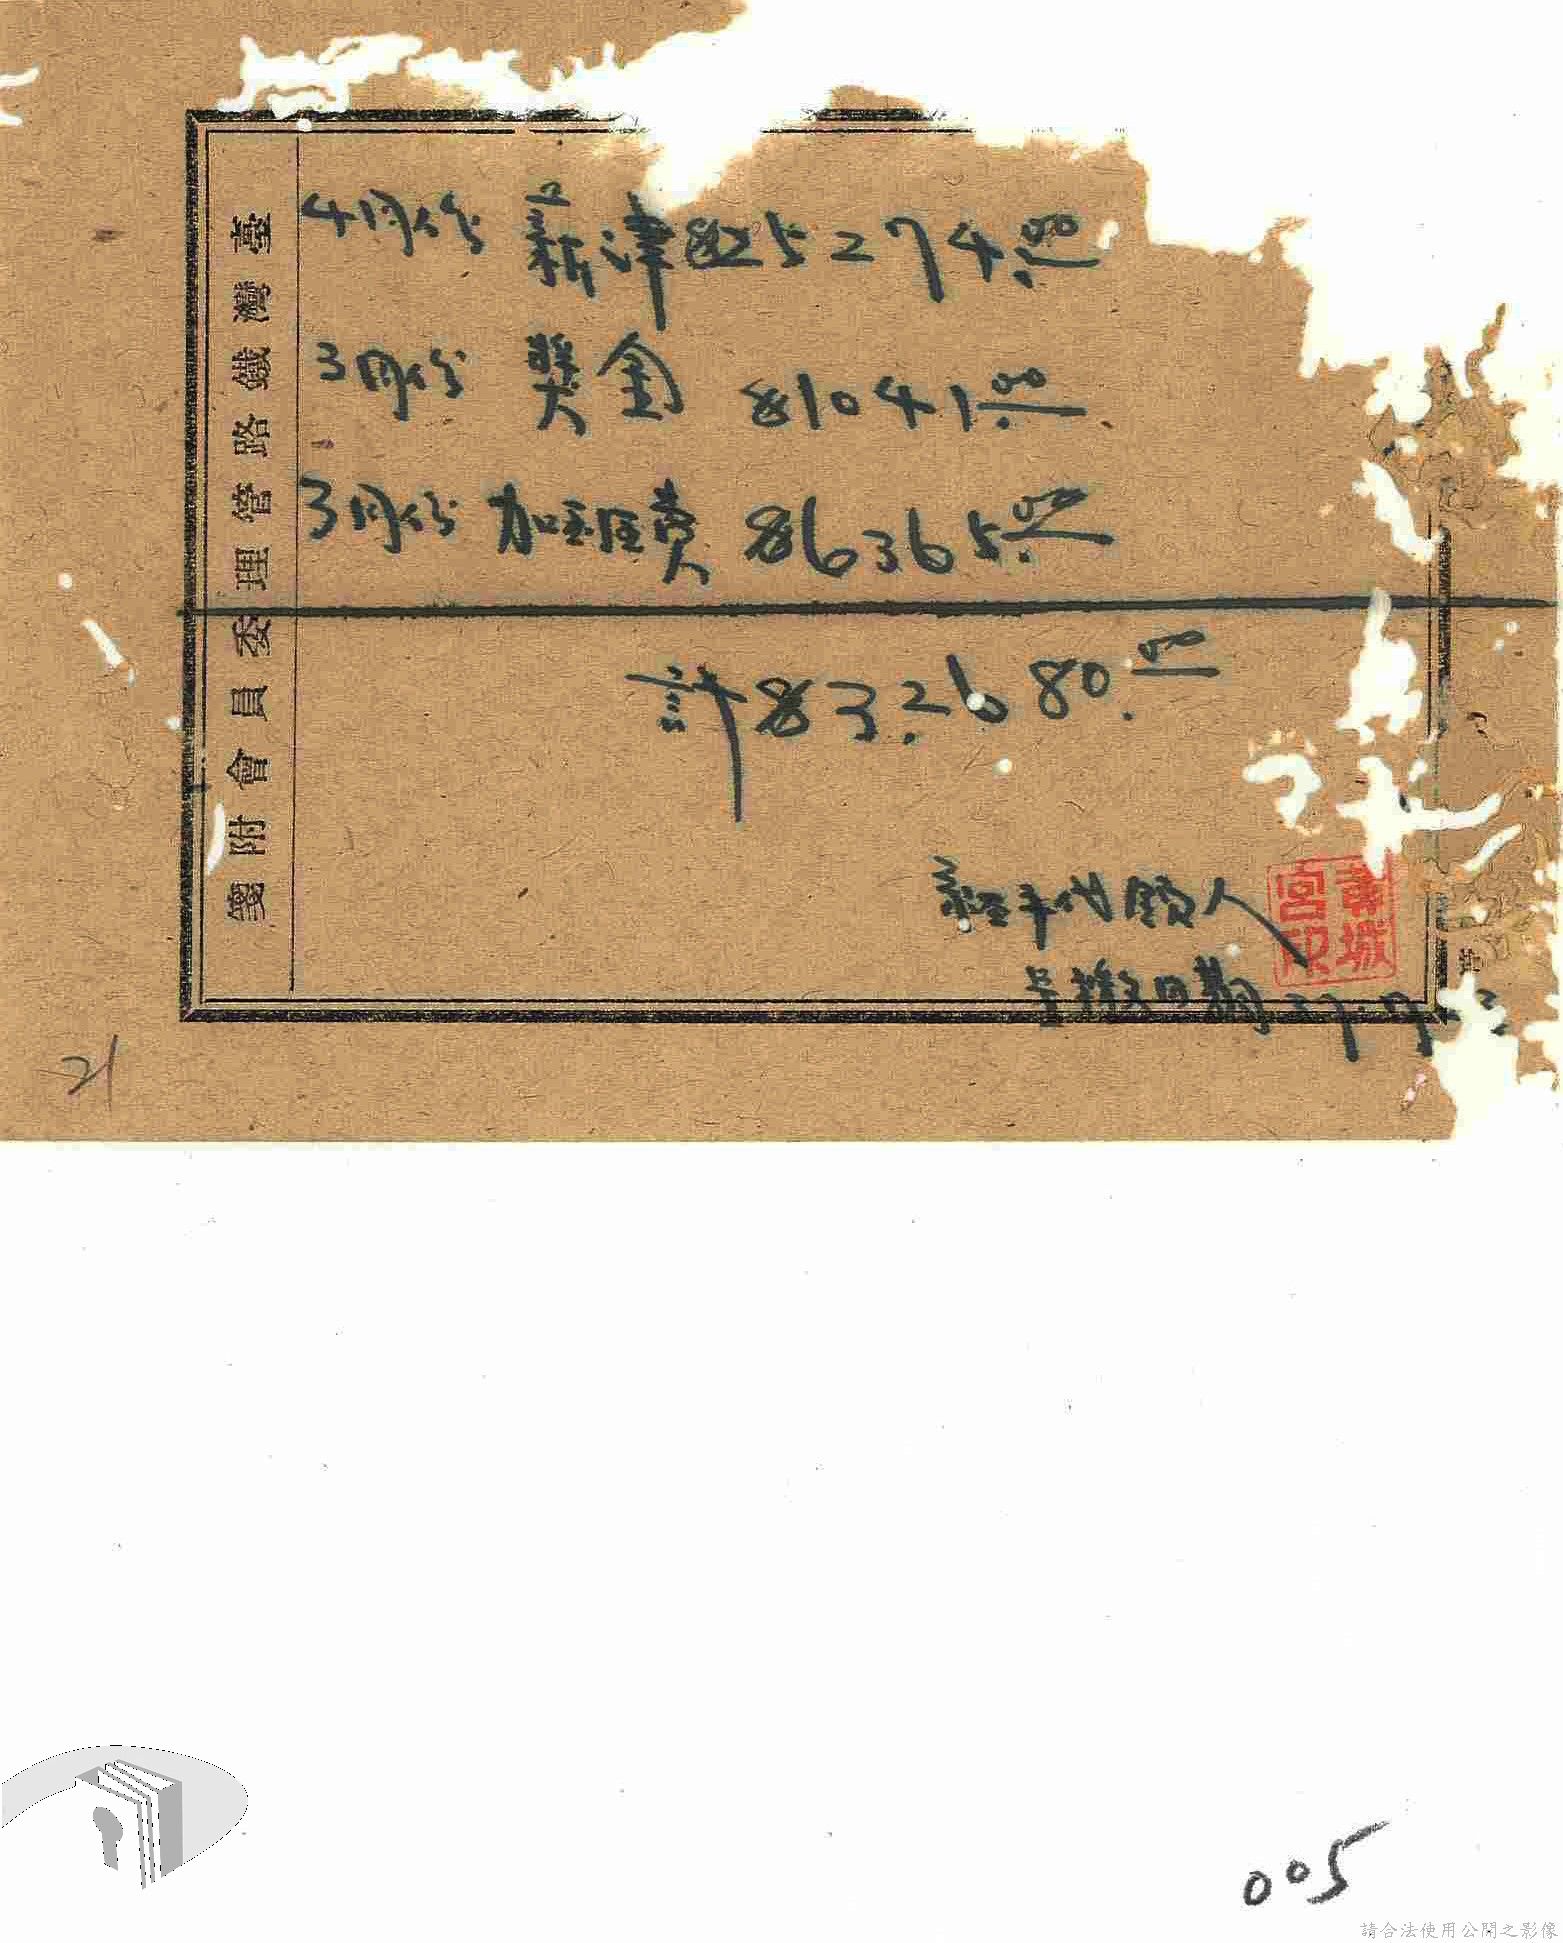 臺灣鐵路管理委員會附箋
4月份 薪津 $25274.00
3月份 奬金 $1041.00
3月份 加班費 $6365.00
計 $32680.00
經手代領人
呈繳日期 37.7.
21
005
請合法使用公開之影像